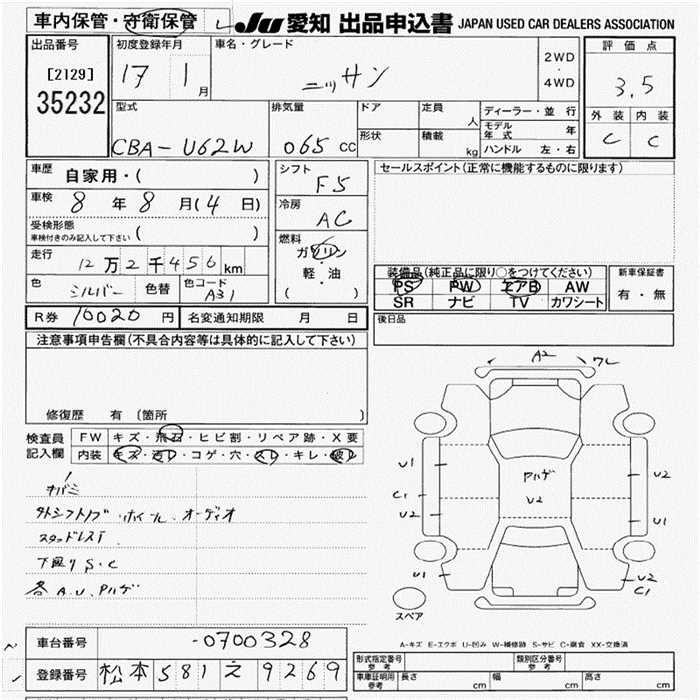 車内保管・守衛保管
JU 愛知 出品申込書 JAPAN USED CAR DEALERS ASSOCIATION
出品番号 初度登録年月 車名・グレード 評価点
[2129] 17 1月 ニッサン 2WD 4WD 3.5
35232
型式 排気量 ドア 定員 人 ディーラー・並行 外装 内装
CBA-U62W 065 cc 形状 積載 kg モデル年式 年 C C
ハンドル 左・右
車歴 自家用・( ) シフト F5 セールスポイント(正常に機能するものに限ります)
車検 8年8月(4日) 冷房 AC
受検形態 車検付きのみ記入して下さい ( )
燃料 ガソリン・軽・油 ( )
走行 12万2千456km
装備品(純正品に限り○をつけてください) 新車保証書
色 シルバー 色替 色コード A31 PS PW エアB AW 有・無
SR ナビ TV カワシート
R券 10020円 名変通知期限 月 日 後日品
注意事項申告欄(不具合内容等は具体的に記入して下さい)
修復歴 有 〔箇所 〕
検査員記入欄 FW キズ・飛石・ヒビ割・リペア跡・X要
内装 キズ・汚レ・コゲ・穴・スレ・キレ・破レ
A2 ワレ
U1 アハゲ U2
C1 U2
U2 U1
U1 U2
C1
スペア
ホイール.オーディオ
スタッドレス
下廻りS.C
各A.U.アハゲ
A-キズ E-エクボ U-凹み W-補修跡 S-サビ C-腐食 XX-交換済
車台番号 -0700328
登録番号 松本 581 え 9269
形式指定番号 参考 類別区分番号 参考
車庫証明用 参考 長さ cm 幅 cm 高さ cm